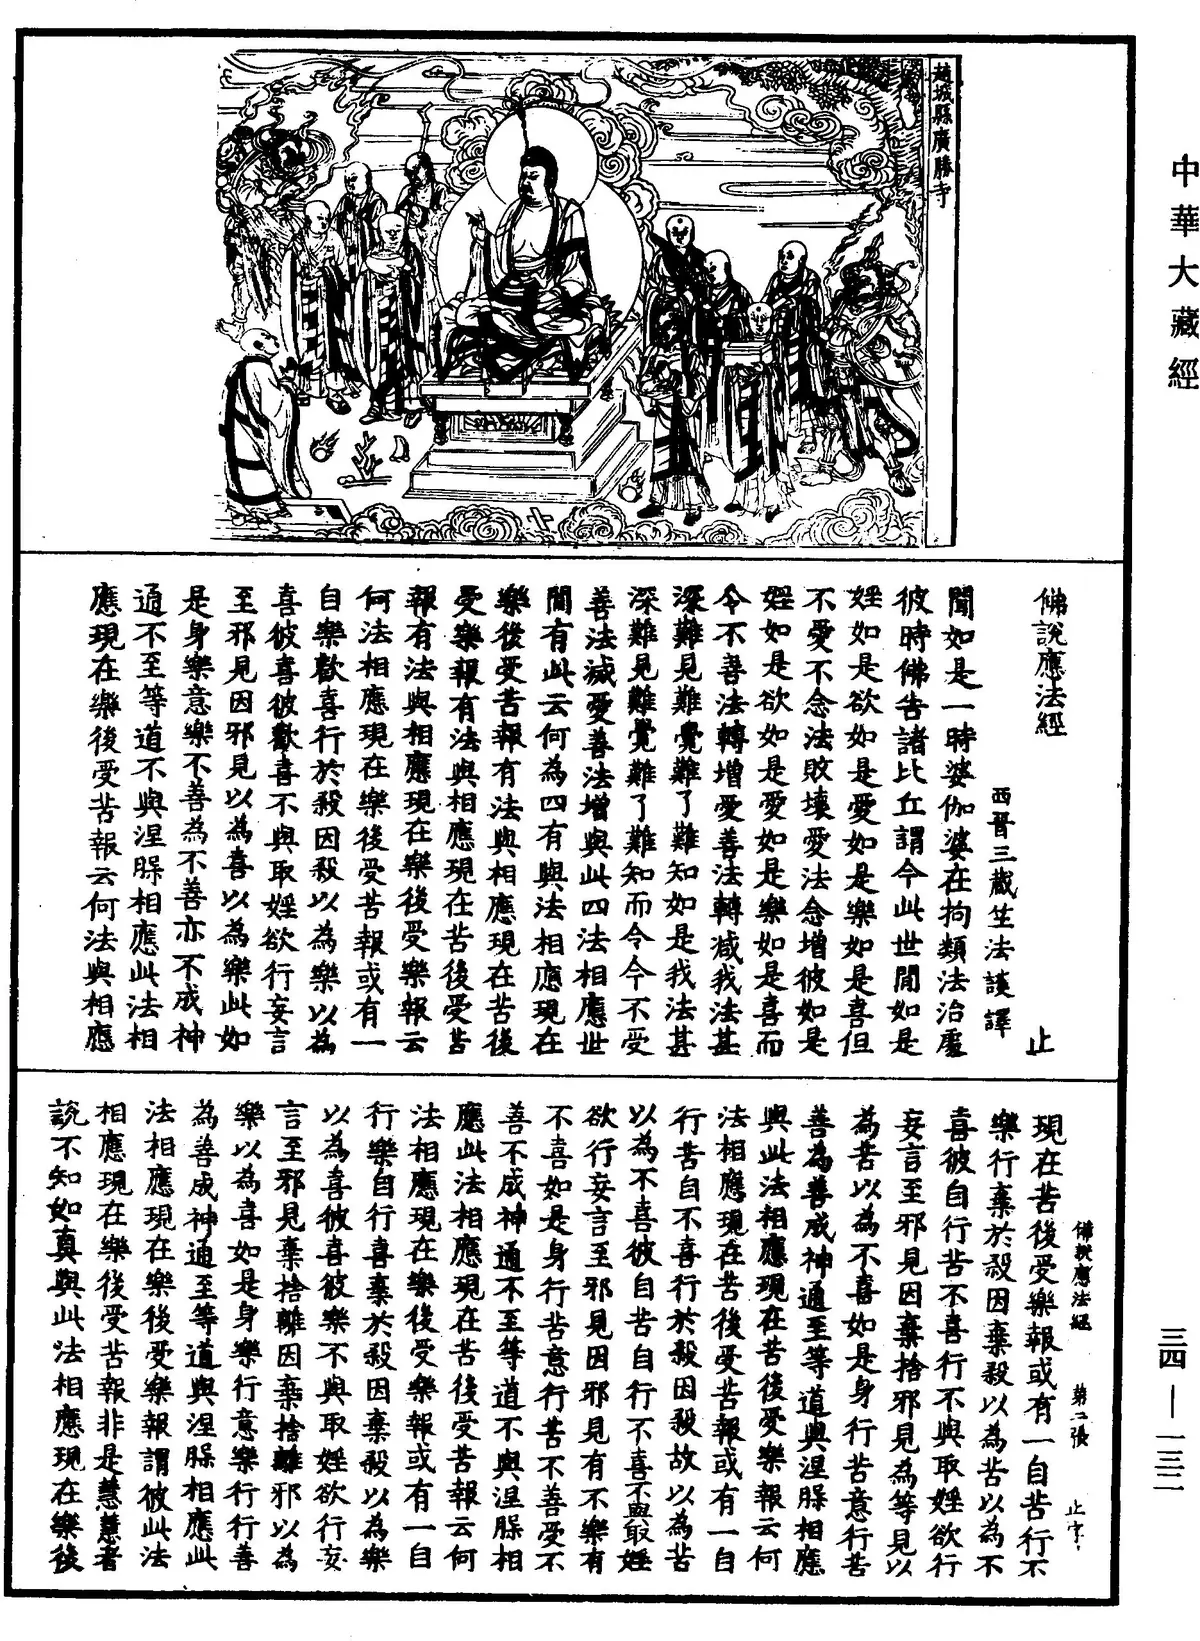 中華大藏經
趙城縣廣勝寺
佛說應法經 止
西晉三藏竺法護譯
聞如是一時婆伽婆在拘類法治處
彼時佛告諸比丘謂今此世間如是
婬如是欲如是愛如是樂如是喜但
不愛不念法敗壞愛法念增彼如是
婬如是欲如是愛如是樂如是喜而
今不善法轉增愛善法轉減我法甚
深難見難覺難了難知如是我法甚
深難見難覺難了難知而令今不受
善法減愛善法增與此四法相應世
間有此云何為四有與法相應現在
樂後受苦報有法與相應現在苦後
受樂報有法與相應現在苦後受苦
報有法與相應現在樂後受樂報云
何法相應現在樂後受苦報或有一
自樂歡喜行於殺因殺以為樂以為
喜彼喜彼歡喜不與取婬欲行妄言
至邪見因邪見以為喜以為樂此如
是身樂意樂不善為不善亦不成神
通不至等道不與涅槃相應此法相
應現在樂後受苦報云何法與相應
現在苦後受樂報或有一自苦行不
樂行棄於殺因棄殺以為苦以為不
喜彼自行苦不喜行不與取婬欲行
妄言至邪見因棄捨邪見為等見以
為苦以為不喜如是身行苦意行苦
善為善成神通至等道與涅槃相應
與此法相應現在苦後受樂報云何
法相應現在苦後受苦報或有一自
行苦自不喜行於殺因殺故以為苦
以為不喜彼自苦自行不喜不與取婬
欲行妄言至邪見因邪見有不樂有
不喜如是身行苦意行苦不善受不
善不成神通不至等道不與涅槃相
應此法相應現在苦後受苦報云何
法相應現在樂後受樂報或有一自
行樂自行喜棄於殺因棄殺以為樂
以為喜彼喜彼樂不與取婬欲行妄
言至邪見棄捨離因棄捨離邪以為
樂以為喜如是身樂行意樂行行善
為善成神通至等道與涅槃相應此
法相應現在樂後受樂報謂彼此法
相應現在樂後受苦報非是慧慧者
說不知如真與此法相應現在樂後
佛說應法經 第二張 止字
三四—一三二